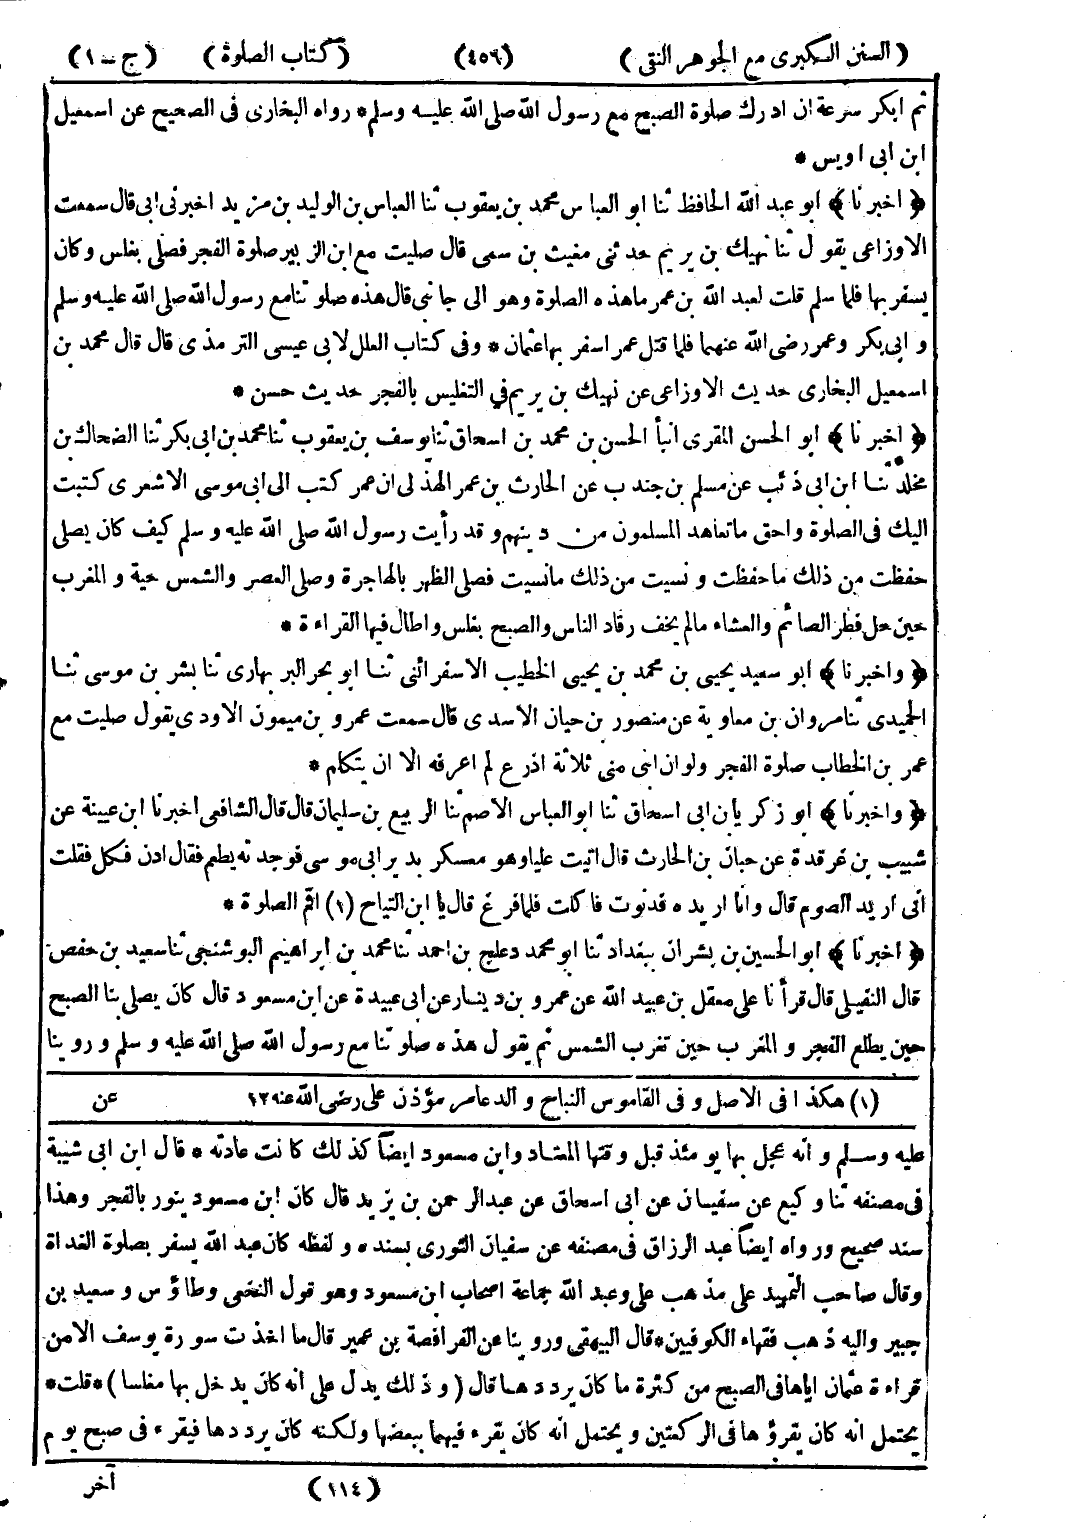 (السنن الكبرى مع الجوهر النقى) (٤٥٦) (كتاب الصلوة) (ج – ١)
ثم ابكر سرعة ان ادرك صلوة الصبح مع رسول الله صلى الله عليه وسلم* رواه البخارى فى الصحيح عن اسمعيل
ابن ابى اويس *
﴿ اخبرنا ﴾ ابو عبد الله الحافظ ثنا ابو العباس محمد بن يعقوب ثنا العباس بن الوليد بن مزيد اخبرنى ابى قال سمعت
الاوزاعى يقول ثنا نهيك بن يريم حدثنى مغيث بن سمى قال صليت مع ابن الزبير صلوة الفجر فصلى بغلس وكان
يسفر بها فلما سلم قلت لعبد الله بن عمر ما هذه الصلوة وهو الى جانبى قال هذه صلوتنا مع رسول الله صلى الله عليه وسلم
و ابى بكر وعمر رضى الله عنهما فلما قتل عمر اسفر بها عثمان * وفى كتاب العلل لابى عيسى الترمذى قال قال محمد بن
اسمعيل البخارى حديث الاوزاعى عن نهيك بن يريم في التغليس بالفجر حديث حسن *
﴿ اخبرنا ﴾ ابو الحسن المقرى انبأ الحسن بن محمد بن اسحاق ثنا يوسف بن يعقوب ثنا محمد بن ابى بكر ثنا الضحاك بن
مخلد ثنا ابن ابى ذئب عن مسلم بن جندب عن الحارث بن عمر الهذلى ان عمر كتب الى ابى موسى الاشعرى كتبت
اليك فى الصلوة واحق ما تعاهد المسلمون من دينهم وقد رأيت رسول الله صلى الله عليه وسلم كيف كان يصلى
حفظت من ذلك ما حفظت ونسيت من ذلك ما نسيت فصلى الظهر بالهاجرة وصلى العصر والشمس حية و المغرب
حين حل فطر الصائم والعشاء مالم يخف رقاد الناس والصبح بغلس واطال فيها القراءة *
﴿ واخبرنا ﴾ ابو سعيد يحيى بن محمد بن يحيى الخطيب الاسفرائنى ثنا ابو بحر البربهارى ثنا بشر بن موسى ثنا
الحميدى ثنا مروان بن معاوية عن منصور بن حيان الاسدى قال سمعت عمرو بن ميمون الاودى يقول صليت مع
عمر بن الخطاب صلوة الفجر ولو ان ابنى منى ثلاثة اذرع لم اعرفه الا ان يتكلم *
﴿ واخبرنا ﴾ ابو زكريا بن ابى اسحاق ثنا ابو العباس الاصم ثنا الربيع بن سليمان قال قال الشافعى اخبرنا ابن عيينة عن
شبيب بن غرقدة عن حبان بن الحارث قال اتيت عليا وهو معسكر بدير ابى موسى فوجدته يطعم فقال ادن فكل فقلت
انى اريد الصوم قال وانا اريده فدنوت فاكلت فلما فرغ قال يا ابن التياح (١) اقم الصلوة *
﴿ اخبرنا ﴾ ابو الحسين بن بشران ببغداد ثنا ابو محمد دعلج بن احمد ثنا محمد بن ابراهيم البوشنجى ثنا سعيد بن حفص
قال النفيلى قال قرأنا على معقل بن عبيد الله عن عمرو بن دينار عن ابى عبيدة عن ابن مسعود قال كان يصلى بنا الصبح
حين يطلع الفجر و المغرب حين تغرب الشمس ثم يقول هذه صلوتنا مع رسول الله صلى الله عليه وسلم وروينا
(١) هكذا فى الاصل وفى القاموس النباح و الدعامر مؤذن على رضى الله عنه ١٢ عن
عليه وسلم وانه عجل بها يومئذ قبل وقتها المعتاد وابن مسعود ايضاً كذلك كانت عادته * قال ابن ابى شيبة
فى مصنفه ثنا وكيع عن سفيان عن ابى اسحاق عن عبدالرحمن بن يزيد قال كان ابن مسعود ينور بالفجر وهذا
سند صحيح ورواه ايضاً عبد الرزاق فى مصنفه عن سفيان الثورى بسنده ولفظه كان عبد الله يسفر بصلوة الغداة
وقال صاحب التمهيد على مذهب على وعبد الله جماعة اصحاب ابن مسعود وهو قول النخعى وطاؤس وسعيد بن
جبير واليه ذهب فقهاء الكوفيين* قال البيهقى وروينا عن الفرافصة بن عمير قال ما اخذت سورة يوسف الا من
قراءة عثمان اياها فى الصبح من كثرة ما كان يرددها قال (وذلك يدل على انه كان يدخل بها مغلسا) *قلت*
يحتمل انه كان يقرؤها فى الركعتين ويحتمل انه كان يقرء فيهما ببعضها ولكنه كان يرددها فيقرء فى صبح يوم
(١١٤) آخر